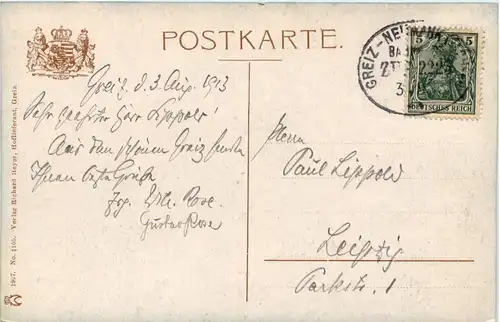 POSTKARTE.
GREIZ-NEUMARK
BAHNP
ZUG
5 5
DEUTSCHES REICH
Greiz d. 3. Aug. 1913
Sehr geehrter Herr Lippold!
Aus dem schönen Greiz sendet
Ihnen beste Grüße
Wilh. Rose.
Gustav Rose
Herrn
Paul Lippold
Leipzig
Parkstr. 1
1907. No. 4160. Verlag Richard Beyer, Hoflieferant, Greiz.